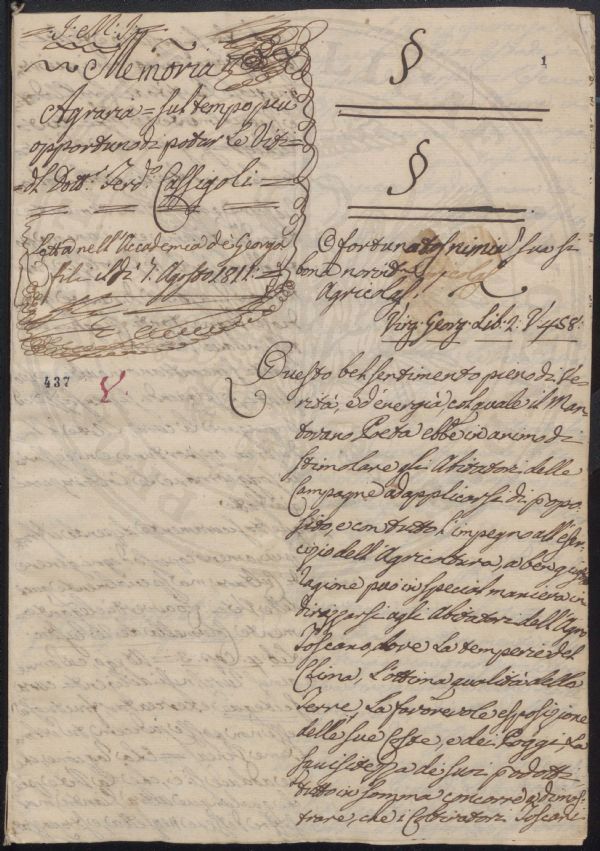 J: M: J:
Memoria
Agraria = sul tempo più
opportuno di potar le Viti =
= del Dott.r Ferd.o Cassigoli =
Letta nell'Accademia dei Georgo
fili il dì 7. Agosto 1811. =
437
§
1
§
O fortunatos nimium sua si
bona norint
Agricolas!
Virg: Georg. Lib: 2: V. 458:
Questo bel sentimento pieno di Ve
rità, e d'energia, col quale il Man
tovano Poeta ebbe in animo di
stimolare gli Abitatori delle
Campagne ad applicarsi di propo
sito, e con tutto l'impegno all'eser
cizio dell'Agricoltura, a ben giusta
ragione può in special maniera in
dirizzarsi agli Abitatori dell'Agro
Toscano, dove la temperie del
Clima, l'ottima qualità delle
Terre, la favorevole esposizione
delle sue Coste, e dei Poggi, la
squisitezza de suoi prodotti
tutto in somma concorre a dimos
trare, che i Coltivatori Toscani